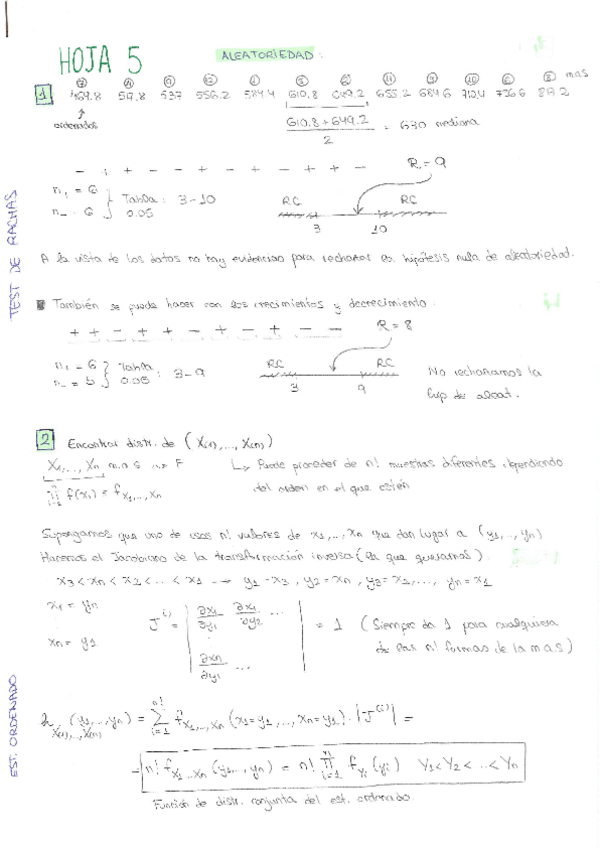 HOJA 5
ALEATORIEDAD:
1 469.8 517.8 537 556.2 584.4 610.8 649.2 655.2 684.6 712.4 736.6 817.2 m.a.s
ordenados
610.8 + 649.2 / 2 = 630 mediana
- + + - + - + - + + - R = 9
n+ = 6
n- = 6
Tabla: 3-10
0.05
RC RC
3 10
TEST DE RACHAS
A la vista de los datos no hay evidencias para rechazar la hipótesis nula de aleatoriedad.
También se puede hacer con los crecimientos y decrecimiento.
+ + - - + - + - + - - R = 8
n+ = 6
n- = 5
Tabla: 3-9
0.05
RC RC
3 9
No rechazamos la
hip de aleat.
2 Encontrar distr. de (X(1),..., X(n))
X1,..., Xn m.a.s ~ F
Puede proceder de n! muestras diferentes dependiendo
del orden en el que estén
∏ f(xi) = f X1,...,Xn
Supongamos que uno de esos n! valores de x1,..,xn que dan lugar a (y1,..,yn)
Hacemos el Jacobiano de la transformación inversa (la que queramos)
x3 < xn < x2 < .. < x1 → y1 = x3, y2 = xn, y3 = x2,..., yn = x1
x1 = yn
xn = y1
J(i) = | ∂x1/∂y1 ∂x1/∂y2 ... ∂xn/∂y1 ... | = 1 (Siempre da 1 para cualquiera
de las n! formas de la mas)
EST. ORDENADO
X(1),...,X(n) (y1,..,yn) = Σ i=1 n! f X1,..,Xn (x1=y1,..., xn=y1) · |J(i)| =
= n! f X1...Xn (y1..., yn) = n! ∏ i=1 n f Yi (yi) Y1 < Y2 < .. < Yn
Función de distr. conjunta del est. ordenado.